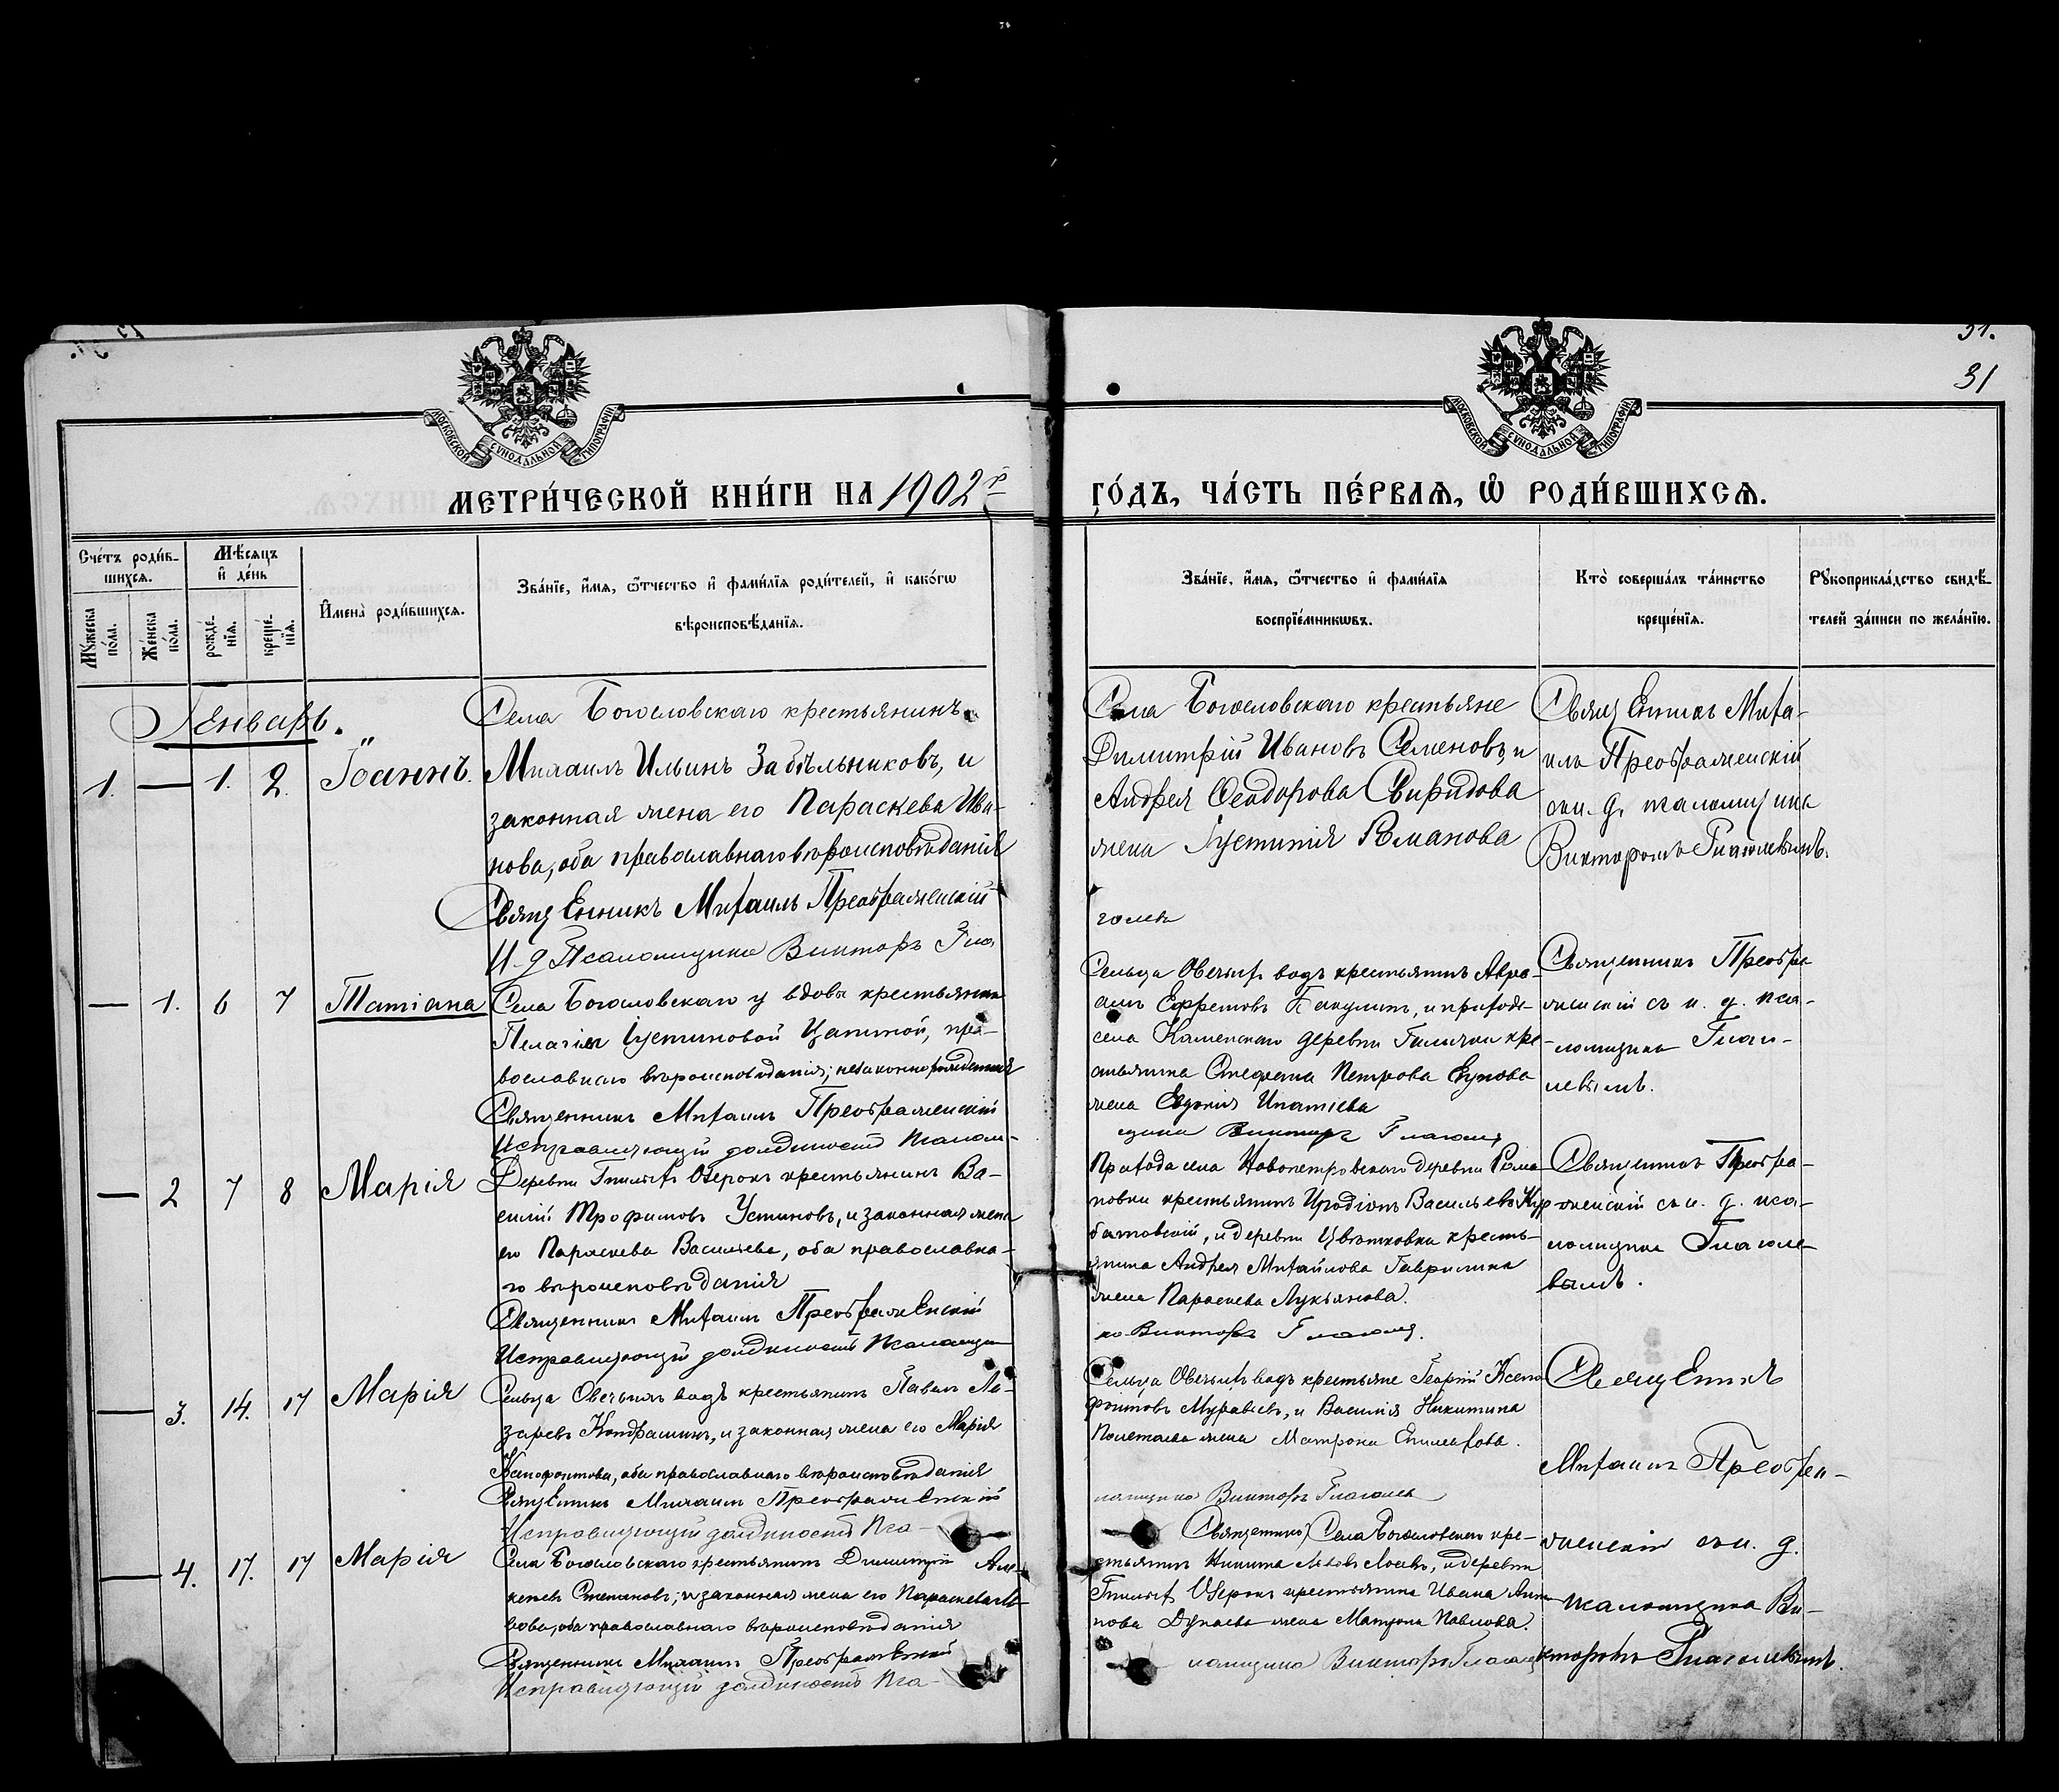 31.
31
МОСКОВСКОЙ СѴНОДАЛЬНОЙ ТИПОГРАФІИ
МОСКОВСКОЙ СѴНОДАЛЬНОЙ ТИПОГРАФІИ
МЕТРИ́ЧЕСКОЙ КНИ́ГИ НА 1902 г
ГО́ДЪ, ЧА́СТЬ ПЕ́РВАѦ, Ѽ РОДИ́ВШИХСѦ.
Сче́тъ роди́в-
шихсѧ.
Мѣ́сѧцъ
и҆ де́нь
Мꙋ́жеска
по́ла.
Же́нска
по́ла.
рожде́-
нїѧ.
креще́-
нїѧ.
И҆мена̀ роди́вшихсѧ.
Зва́нїе, и҆́мѧ, ѻ҆́тчество и҆ фами́лїѧ роди́телей, и҆ како́гѡ
вѣроисповѣ́данїѧ.
Зва́нїе, и҆́мѧ, ѻ҆́тчество и҆ фами́лїѧ
воспрїе́мникѡвъ.
Кто̀ соверша́лъ та́инство
креще́нїѧ.
Рꙋкоприкла́дство свидѣ́-
телей за́писи по жела́нїю.
Январь.
1. — 1. 2. Іоаннъ.
Села Богословскаго крестьянинъ
Михаилъ Ильинъ Забѣльниковъ, и
законная жена его Параскева Ива-
нова, оба православнаго вѣроисповѣданія
Священникъ Михаилъ Преображенскій
И. д. Псаломщика Викторъ Гла
Села Богословскаго крестьяне
Димитрій Ивановъ Семеновъ, и
Андрея Ѳеодорова Свиридова
жена Іустинія Романова
голевъ
Священникъ Миха-
илъ Преображенскій
съ и. д. псаломщика
Викторомъ Глаголевымъ.
— 1. 6 7 Татіана
Села Богословскаго у вдовы крестьянки
Пелагіи Іустиновой Цапиной, пра-
вославнаго вѣроисповѣданія; незаконнорожденная
Священникъ Михаилъ Преображенскій
Исправляющій должность Псалом-
Сельца Овечьихъ водъ крестьянинъ Авра-
амъ Ефремовъ Бакулинъ, и прихода
села Каменскаго деревни кре-
стьянина Стефана Петрова
жена Евдокія Ипатіева
щика Викторъ Глаголев
Священникъ Преобра-
женскій съ и. д. пса-
ломщика Глаго-
левымъ.
— 2 7 8 Марія
Деревни Гнилыхъ Озерокъ крестьянинъ Ва-
силій Трофимовъ Устиновъ, и законная жена
его Параскева Васильева, оба православна-
го вѣроисповѣданія
Священникъ Михаилъ Преображенскій
Исправляющій должность Псаломщи
Прихода села Новопетровскаго деревни Рома
новки крестьянинъ Иродіонъ Васильевъ Кур
батовскій, и деревни Цвѣтковки кресть-
янина Андрея Михайлова Гаврилина
жена Параскева Лукьянова.
ка Викторъ Глаголев.
Священникъ Преобра-
женскій съ и. д. пса-
ломщика Глаголе-
вымъ.
— 3. 14. 17 Марія
Сельца Овечьихъ водъ крестьянинъ Павелъ Ла-
заревъ Кондрашинъ, и законная жена его Марія
Ксенофонтова, оба православнаго вѣроисповѣданія
Священникъ Михаилъ Преображенскій
Исправляющій должность Пса-
Сельца Овечьихъ водъ крестьяне Георгій Ксено
фонтовъ Муравьевъ, и Василія Никитина
Полетаева жена Матрона
ломщика Викторъ Глаголев
Священникъ
Михаилъ Преобра-
женскій съ и. д.
псаломщика Ви-
кторомъ Глаголевымъ.
— 4. 17. 17 Марія
Села Богословскаго крестьянинъ Димитрій Але
ксеевъ Степановъ, и законная жена его Параскева Ль
вова, оба православнаго вѣроисповѣданія
Священникъ Михаилъ Преображенскій
Исправляющій должность Пса-
Села Богословскаго кре-
стьянинъ Никита и деревни
Гнилыхъ Озерокъ крестьянина Ивана
жена Матрона Павлова.
ломщика Викторъ Глаголев